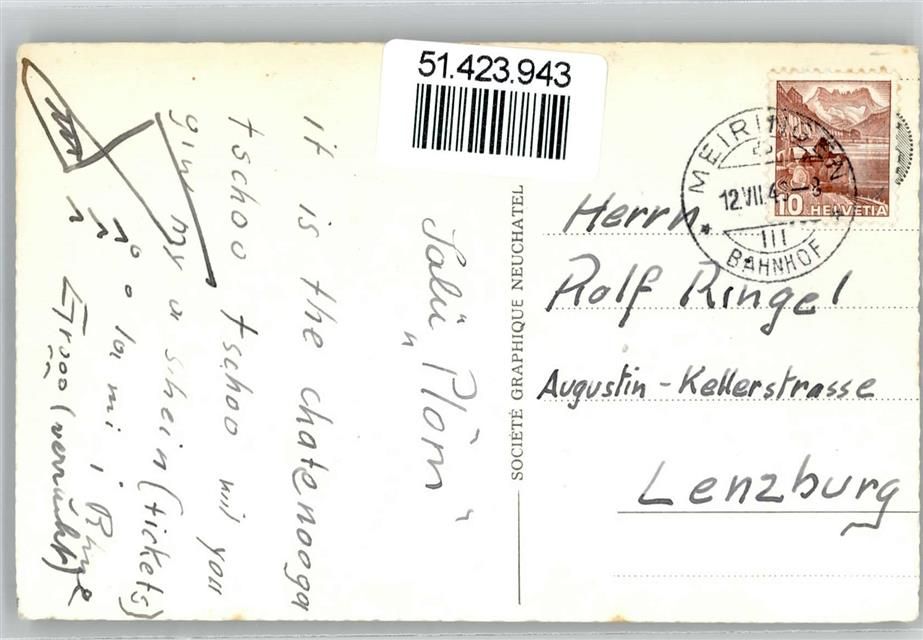 51.423.943
Salü „Plöm"
it is the chatenooga
tschoo tschoo wil you
give my a schein (tickets)
la mi i Ruhe
(verrückt)
SOCIÉTÉ GRAPHIQUE NEUCHATEL
MEIRINGEN
12.VII.4
III
BAHNHOF
10 HELVETIA
Herrn
Rolf Ringel
Augustin-Kellerstrasse
Lenzburg